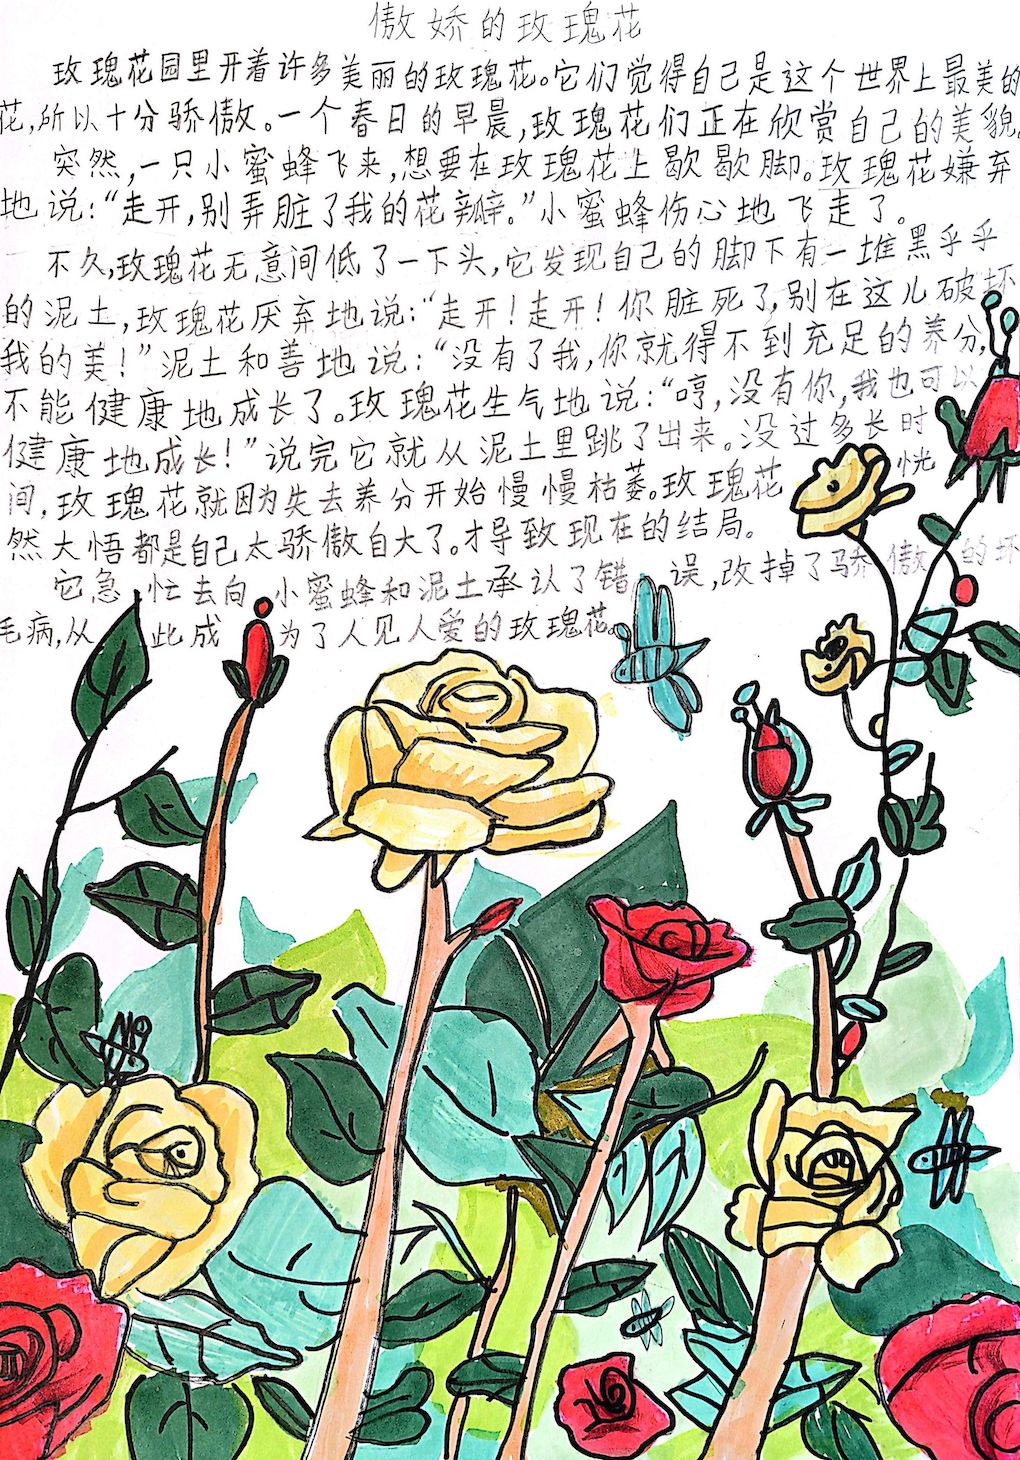 傲娇的玫瑰花
玫瑰花园里开着许多美丽的玫瑰花。它们觉得自己是这个世界上最美的
花,所以十分骄傲。一个春日的早晨,玫瑰花们正在欣赏自己的美貌。
突然,一只小蜜蜂飞来,想要在玫瑰花上歇歇脚。玫瑰花嫌弃
地说:“走开,别弄脏了我的花瓣。”小蜜蜂伤心地飞走了。
不久,玫瑰花无意间低了一下头,它发现自己的脚下有一堆黑乎乎
的泥土,玫瑰花厌弃地说:“走开!走开!你脏死了,别在这儿破坏
我的美!”泥土和善地说:“没有了我,你就得不到充足的养分,
不能健康地成长了。玫瑰花生气地说:“哼,没有你,我也可以
健康地成长!”说完它就从泥土里跳了出来。没过多长时
间,玫瑰花就因为失去养分开始慢慢枯萎。玫瑰花恍
然大悟都是自己太骄傲自大了。才导致现在的结局。
它急忙去向小蜜蜂和泥土承认了错误,改掉了骄傲的坏
毛病,从此成为了人见人爱的玫瑰花。